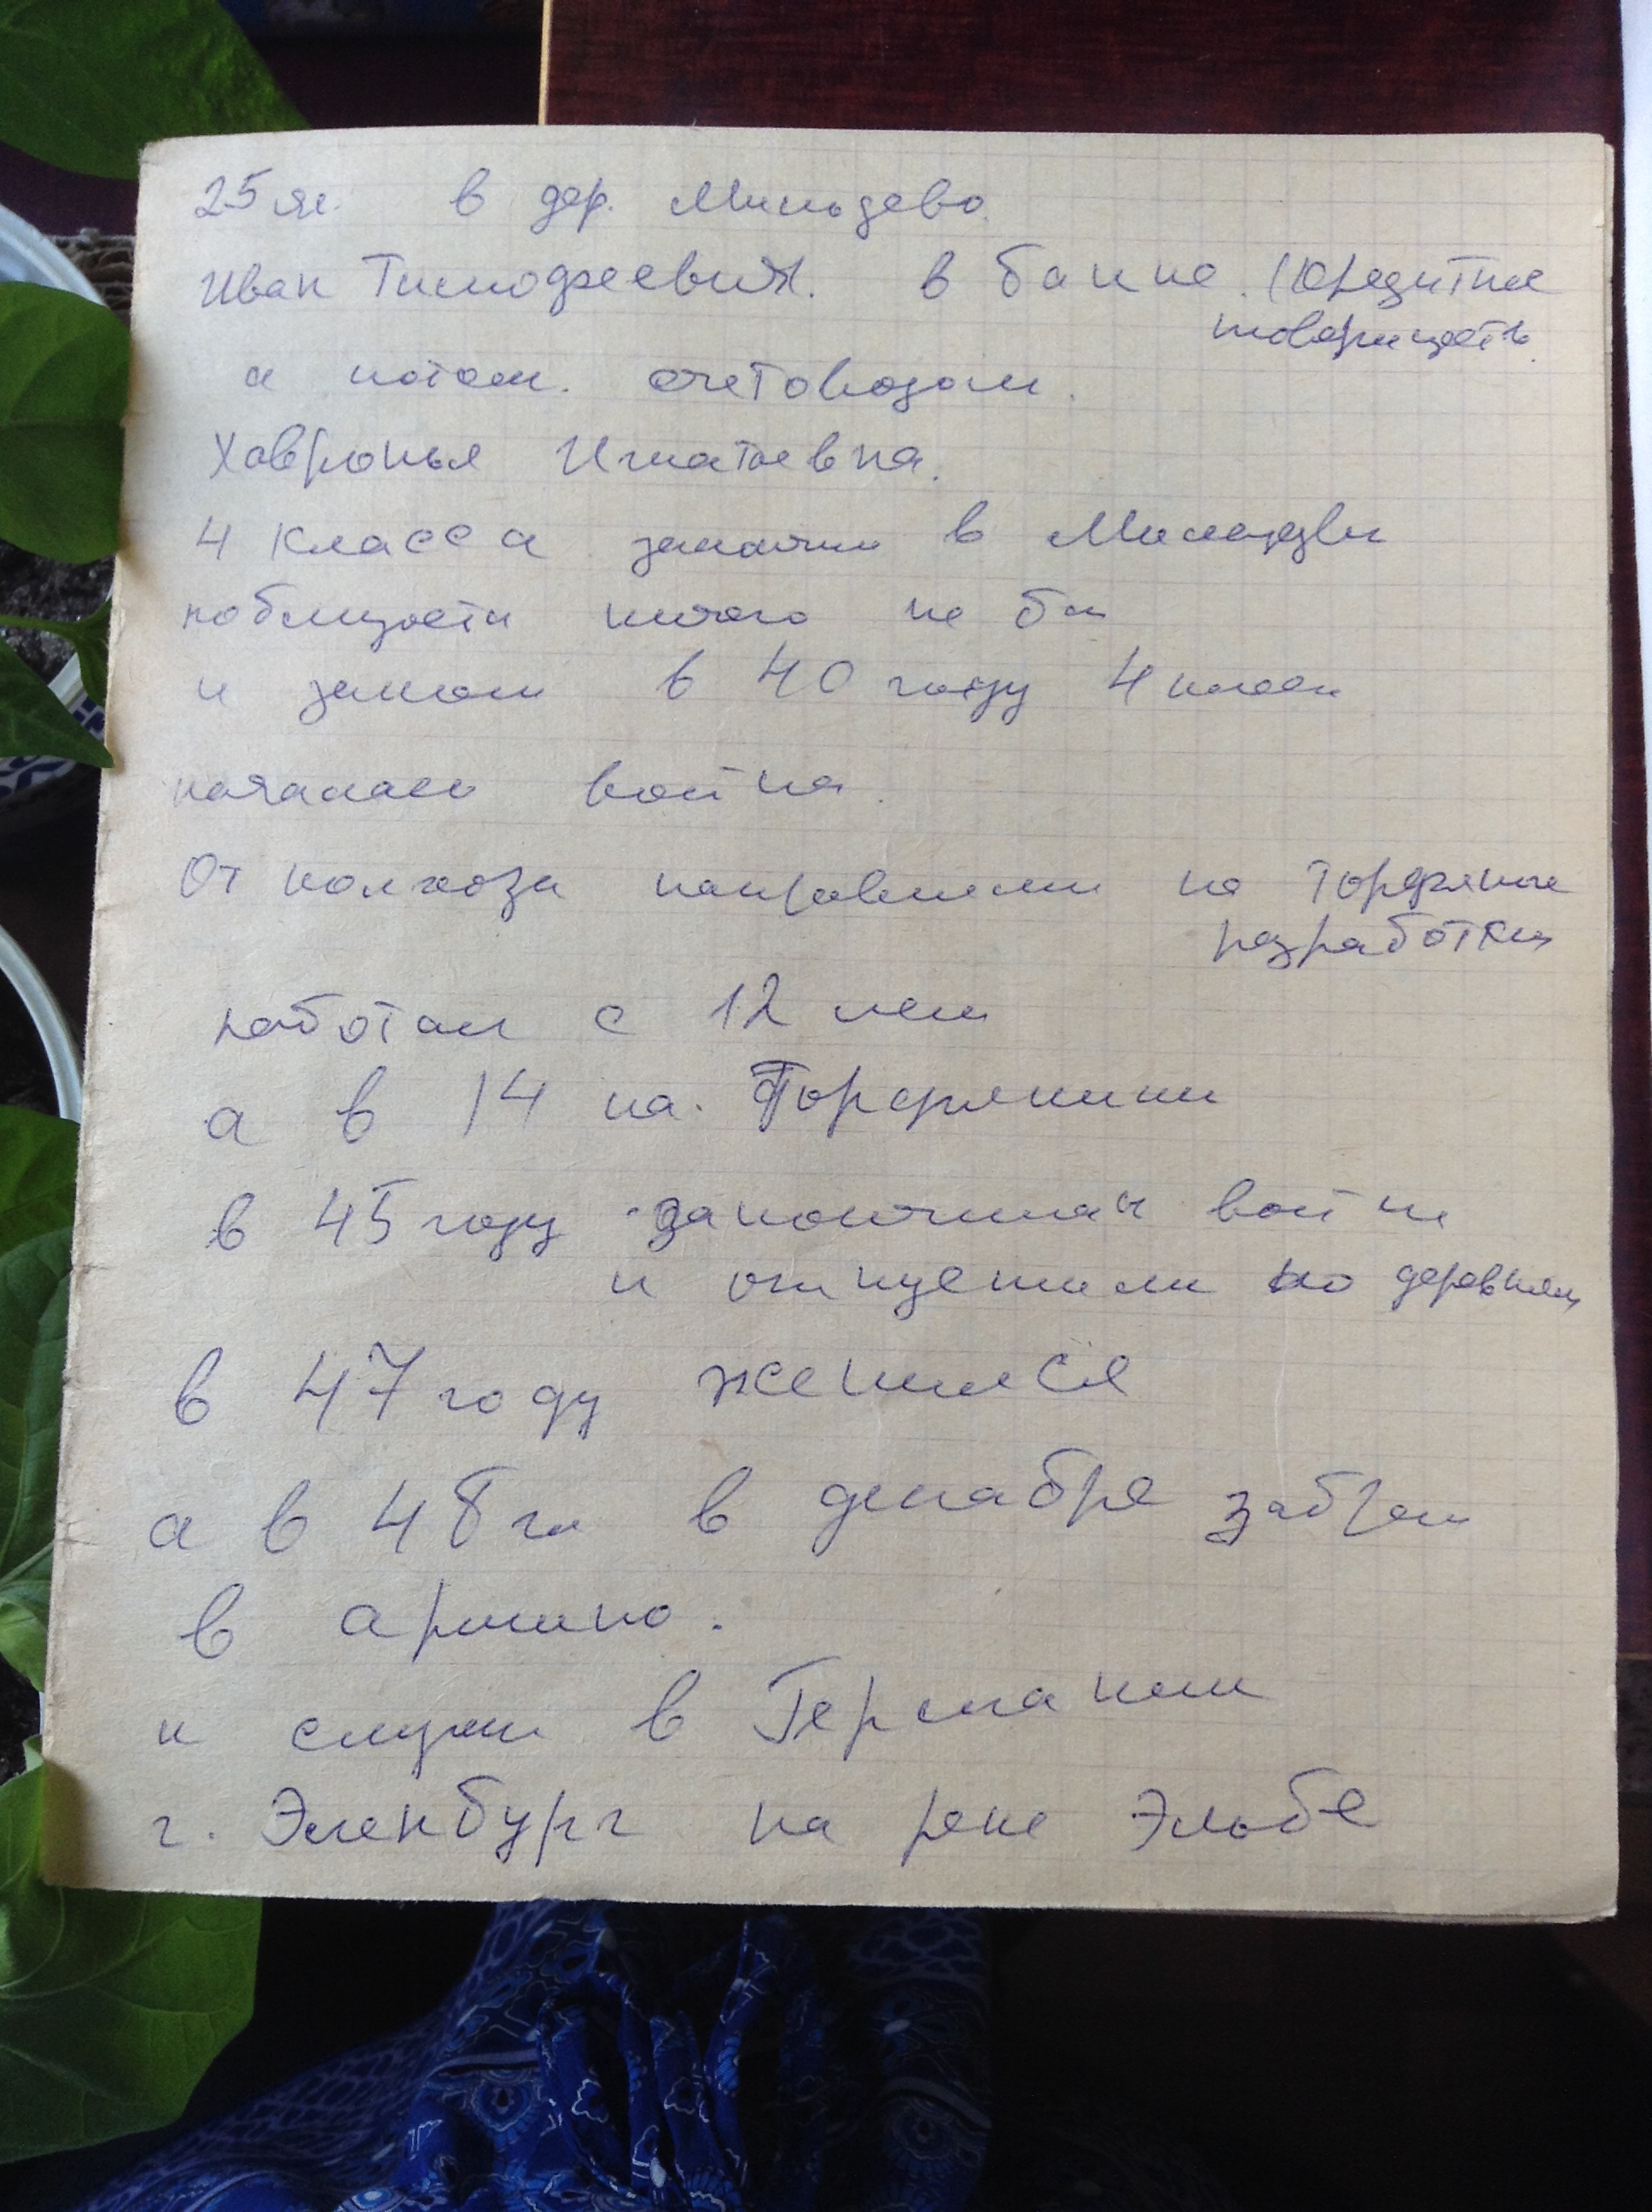 25 г. в дер. Мильдево
Иван Тимофеевич. в банке (Кредитное
товарищество
а потом. счетоводом.
Хавронья Игнатьевна.
4 класса закончил в
поблизости ничего не бы
и закон в 40 году 4 класс
началась война.
От колхоза направили на торфяные
разработки
работал с 12 лет
а в 14 на. Торфяники
в 45 году закончилась война
и отпустили по деревням
в 47 году женился
а в 48 г в декабре забрали
в армию.
и служил в Германии
г. Эленбург на реке Эльбе